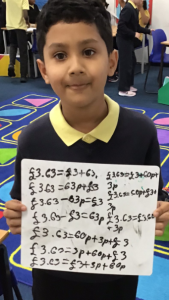 £3.63=£3+63p
£3.63=63p+£3
£3.63-63p=£3
£3.63-£3=63p
£3.63=60p+3p+£3
£3.63=3p+60p+£3
£3.63=£3+3p+60p
£3.63=£3+60p+3p
£3.63=60p+£3+3p